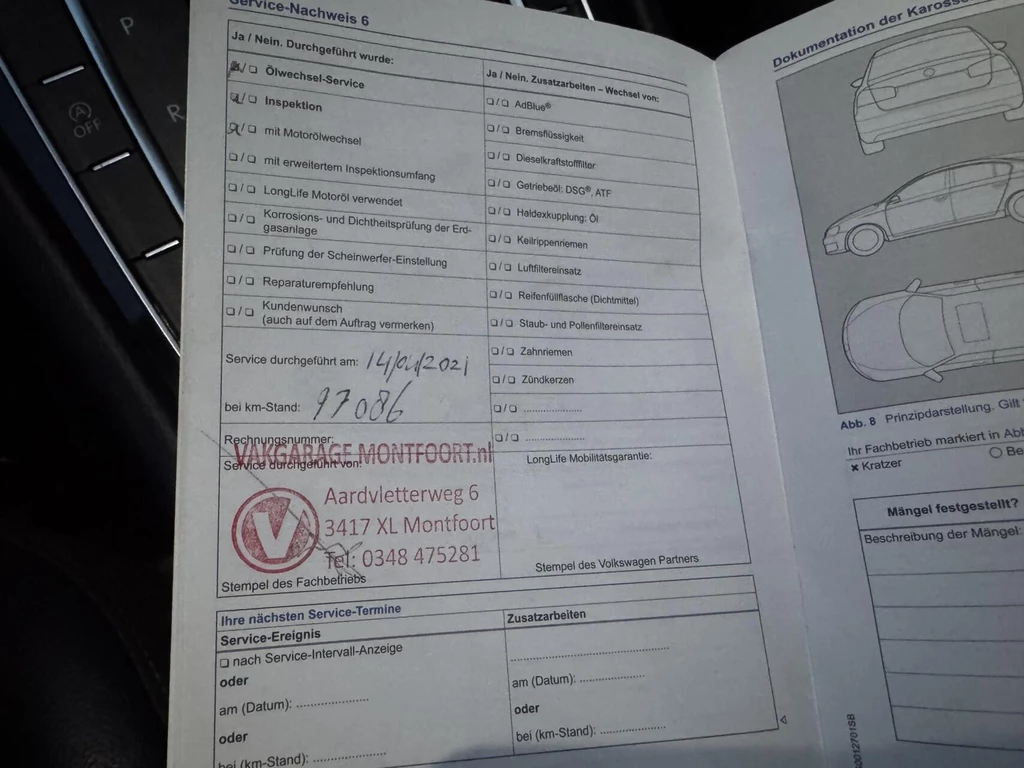 P
R
(A)
OFF
Service-Nachweis 6
Ja / Nein. Durchgeführt wurde:
☒/☐ Ölwechsel-Service
☒/☐ Inspektion
☒/☐ mit Motorölwechsel
☐/☐ mit erweitertem Inspektionsumfang
☐/☐ LongLife Motoröl verwendet
☐/☐ Korrosions- und Dichtheitsprüfung der Erd-
gasanlage
☐/☐ Prüfung der Scheinwerfer-Einstellung
☐/☐ Reparaturempfehlung
☐/☐ Kundenwunsch
(auch auf dem Auftrag vermerken)
Service durchgeführt am:
bei km-Stand: 97086
Rechnungsnummer:
Service durchgeführt von:
VAKGARAGE MONTFOORT.nl
V
Aardvletterweg 6
3417 XL Montfoort
Tel: 0348 475281
Stempel des Fachbetriebs
Ja / Nein. Zusatzarbeiten – Wechsel von:
☐/☐ AdBlue®
☐/☐ Bremsflüssigkeit
☐/☐ Dieselkraftstofffilter
☐/☐ Getriebeöl: DSG®, ATF
☐/☐ Haldexkupplung: Öl
☐/☐ Keilrippenriemen
☐/☐ Luftfiltereinsatz
☐/☐ Reifenfüllflasche (Dichtmittel)
☐/☐ Staub- und Pollenfiltereinsatz
☐/☐ Zahnriemen
☐/☐ Zündkerzen
☐/☐ ....................
☐/☐ ....................
LongLife Mobilitätsgarantie:
Stempel des Volkswagen Partners
Ihre nächsten Service-Termine
Service-Ereignis
☐ nach Service-Intervall-Anzeige
oder
am (Datum): ....................
oder
bei (km-Stand): ....................
Zusatzarbeiten
............................................
am (Datum): ....................
oder
bei (km-Stand): ....................
Dokumentation der
Abb. 8 Prinzipdarstellung. Gilt
Ihr Fachbetrieb markiert in Abb
× Kratzer
○ Be
Mängel festgestellt?
Beschreibung der Mängel: